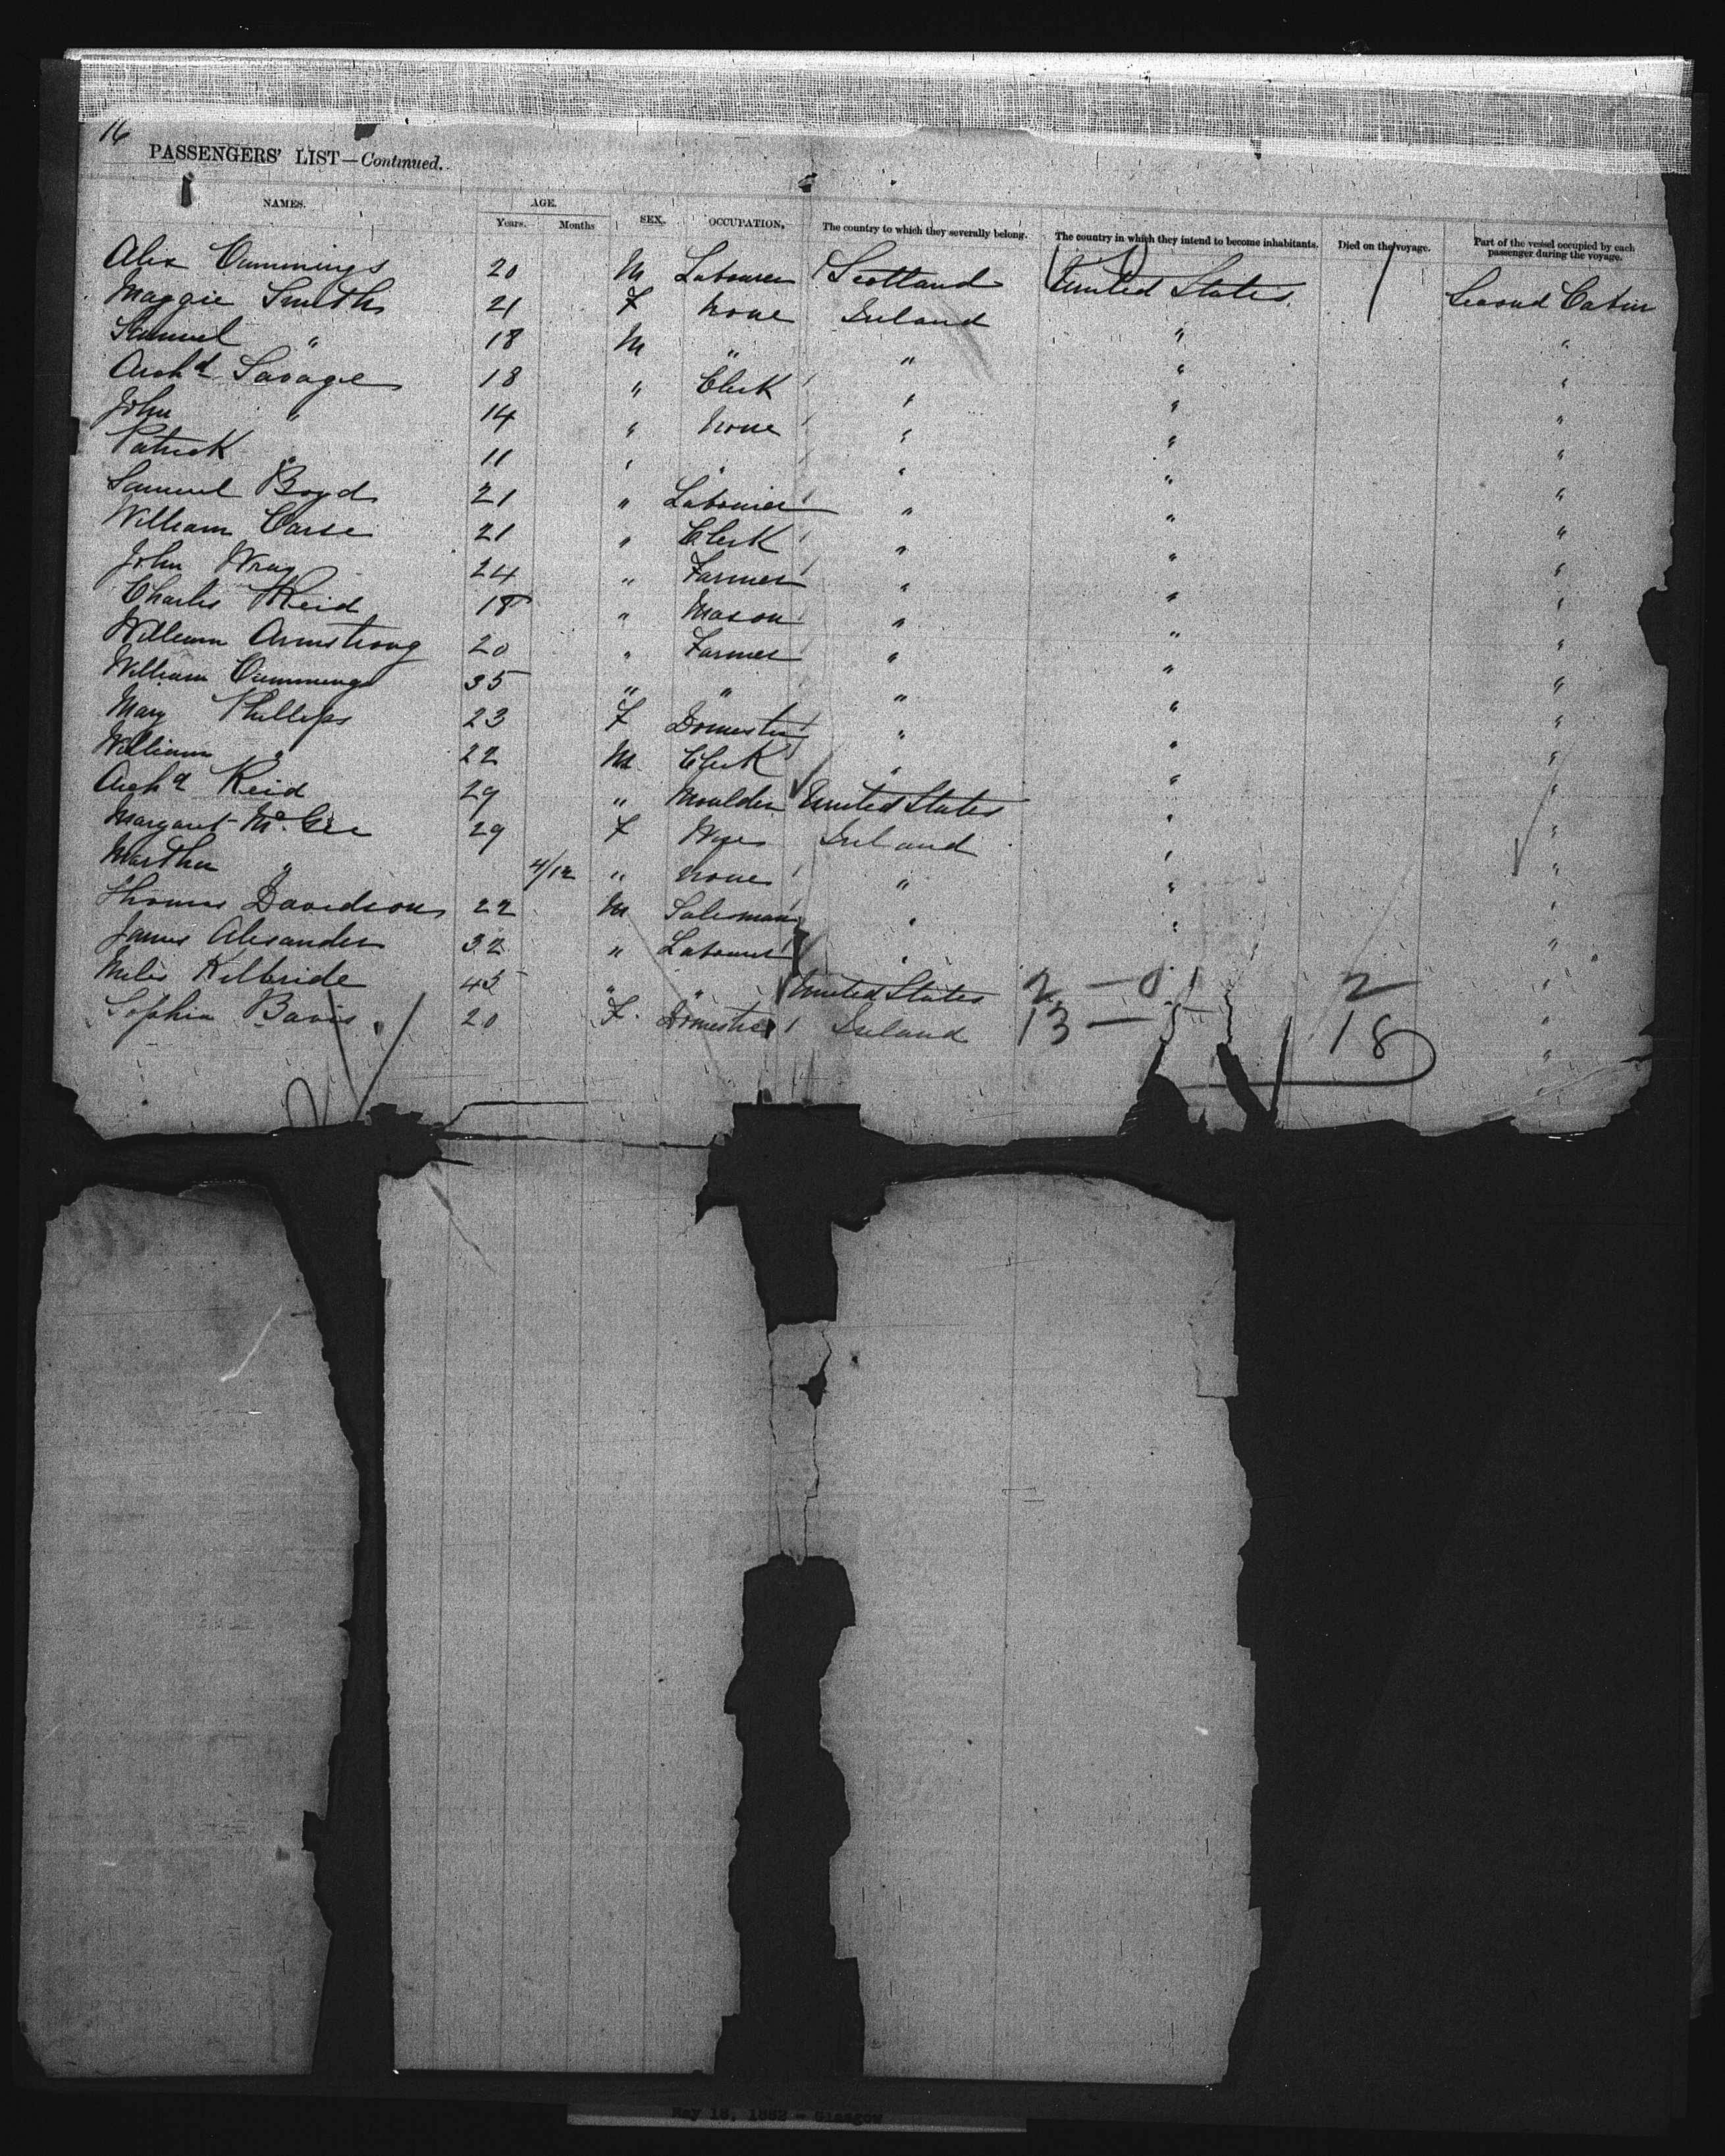 16
PASSENGERS' LIST—Continued.
NAMES. AGE. Years. Months SEX. OCCUPATION, The country to which they severally belong. The country in which they intend to become inhabitants. Died on the voyage. Part of the vessel occupied by each passenger during the voyage.
Alex Cummings 20 M Labourer Scotland United States Second Cabin
Maggie Smith 21 F None Ireland " "
Samuel " 18 M " " " "
Archd Savage 18 " Clerk " " "
John " 14 " None " " "
Patrick " 11 " " " " "
Samuel Boyd 21 " Labourer " " "
William Carse 21 " Clerk " " "
John Wray 24 " Farmer " " "
Charles Reid 18 " Mason " " "
William Armstrong 20 " Farmer " " "
William Cummings 35 " " " " "
Mary Phillips 23 F Domestic " " "
William " 22 M Clerk " " "
Archd Reid 29 " Moulder United States " "
Margaret McGee 29 F Wife Ireland " "
Martha " 4/12 " None " " "
Thomas Davidson 22 M Salesman " " "
James Alexander 32 " Labourer " "
Miles Kilbride 45 " " United States 2 — 0 2 "
Sophia Bavis 20 F Domestic Ireland 13 — 5 18 "
21
May 18, 1882 - Glasgow